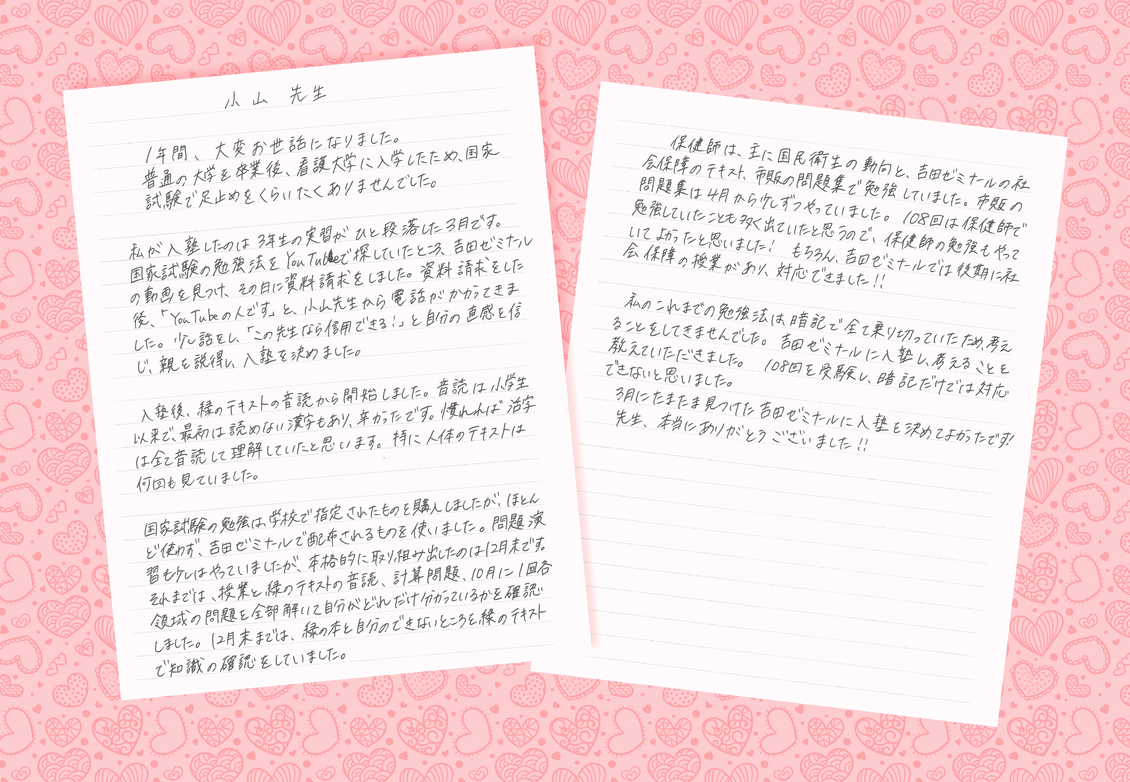 小山 先生
1年間、大変お世話になりました。
普通の大学を卒業後、看護大学に入学したため、国家
試験で足止めをくらいたくありませんでした。
私が入塾したのは3年生の実習がひと段落した3月です。
国家試験の勉強法をYouTubeで探していたところ、吉田ゼミナール
の動画を見つけ、その日に資料請求をしました。資料請求をした
後、「YouTubeの人です」と、小山先生から電話がかかってきま
した。少し話をし、「この先生なら信用できる!」と自分の直感を信
じ、親を説得し、入塾を決めました。
入塾後、緑のテキストの音読から開始しました。音読は小学生
以来で、最初は読めない漢字もあり、辛かったです。慣れれば活字
は全て音読して理解していたと思います。特に人体のテキストは
何回も見ていました。
国家試験の勉強は学校で指定されたものを購入しましたが、ほとん
ど使わず、吉田ゼミナールで配布されるものを使いました。問題演
習も少しはやっていましたが、本格的に取り組み出したのは12月末です。
それまでは、授業と緑のテキストの音読、計算問題、10月に1回各
領域の問題を全部解いて自分がどれだけ分かっているかを確認
しました。12月末までは、緑の本と自分のできないところを緑のテキスト
で知識の確認をしていました。
保健師は、主に国民衛生の動向と、吉田ゼミナールの社
会保障のテキスト、市販の問題集で勉強していました。市販の
問題集は4月から少しずつやっていました。108回は保健師で
勉強していたことも多く出ていたと思うので、保健師の勉強もやって
いてよかったと思いました! もちろん、吉田ゼミナールでは後期に社
会保障の授業があり、対応できました!!
私のこれまでの勉強法は暗記で全て乗り切っていたため、考え
ることをしてきませんでした。吉田ゼミナールに入塾し、考えることを
教えていただきました。 108回を受験し、暗記だけでは対応
できないと思いました。
3月にたまたま見つけた吉田ゼミナールに入塾を決めてよかったです!
先生、本当にありがとうございました!!